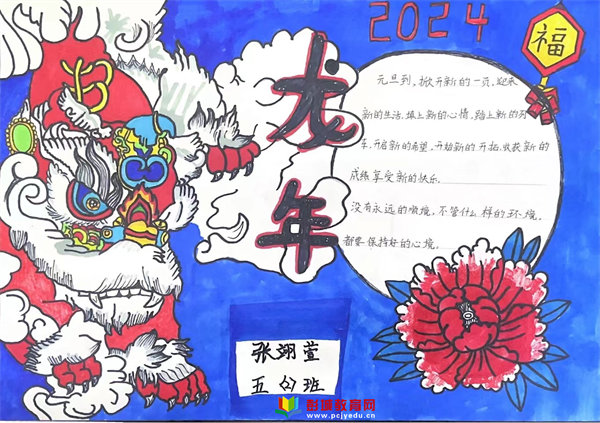 2024
福
龙年
元旦到,掀开新的一页,迎来
新的生活,填上新的心情,踏上新的列
车,开启新的希望,开始新的开拓,收获新的
成绩享受新的快乐.
没有永远的顺境,不管什么样的环境,
都要保持好的心境.
张翊萱
五(2)班
彭球教育网
www.pcjyedu.cn